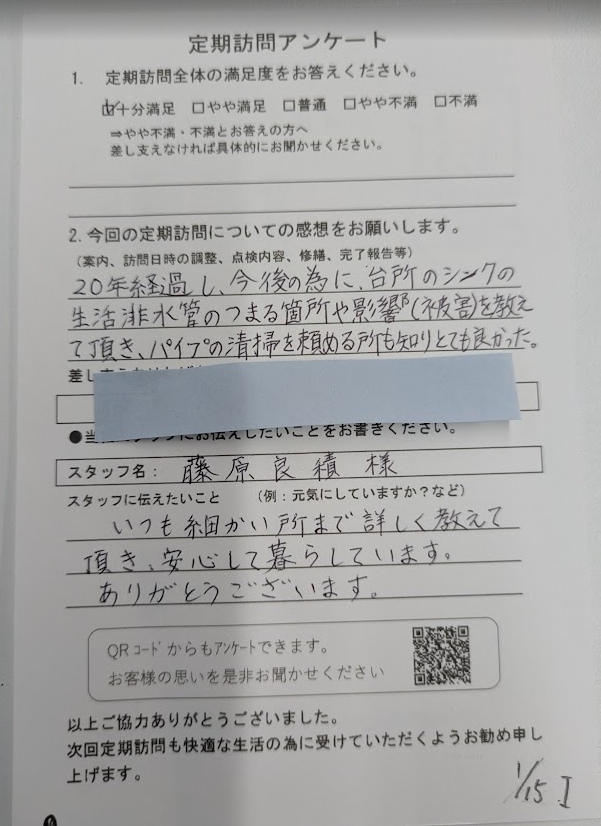 定期訪問アンケート
1. 定期訪問全体の満足度をお答えください。
☑十分満足 □やや満足 □普通 □やや不満 □不満
⇒やや不満・不満とお答えの方へ
差し支えなければ具体的にお聞かせください。
2. 今回の定期訪問についての感想をお願いします。
（案内、訪問日時の調整、点検内容、修繕、完了報告等）
20年経過し、今後の為に、台所のシンクの
生活排水管のつまる箇所や影響(被害)を教え
て頂き、パイプの清掃を頼める所も知りとても良かった。
差し
●当
にお伝えしたいことをお書きください。
スタッフ名： 藤原良積様
スタッフに伝えたいこと （例：元気にしていますか？など）
いつも細かい所まで詳しく教えて
頂き、安心して暮らしています。
ありがとうございます。
QRコードからもアンケートできます。
お客様の思いを是非お聞かせください
以上ご協力ありがとうございました。
次回定期訪問も快適な生活の為に受けていただくようお勧め申し
上げます。
1/15 I